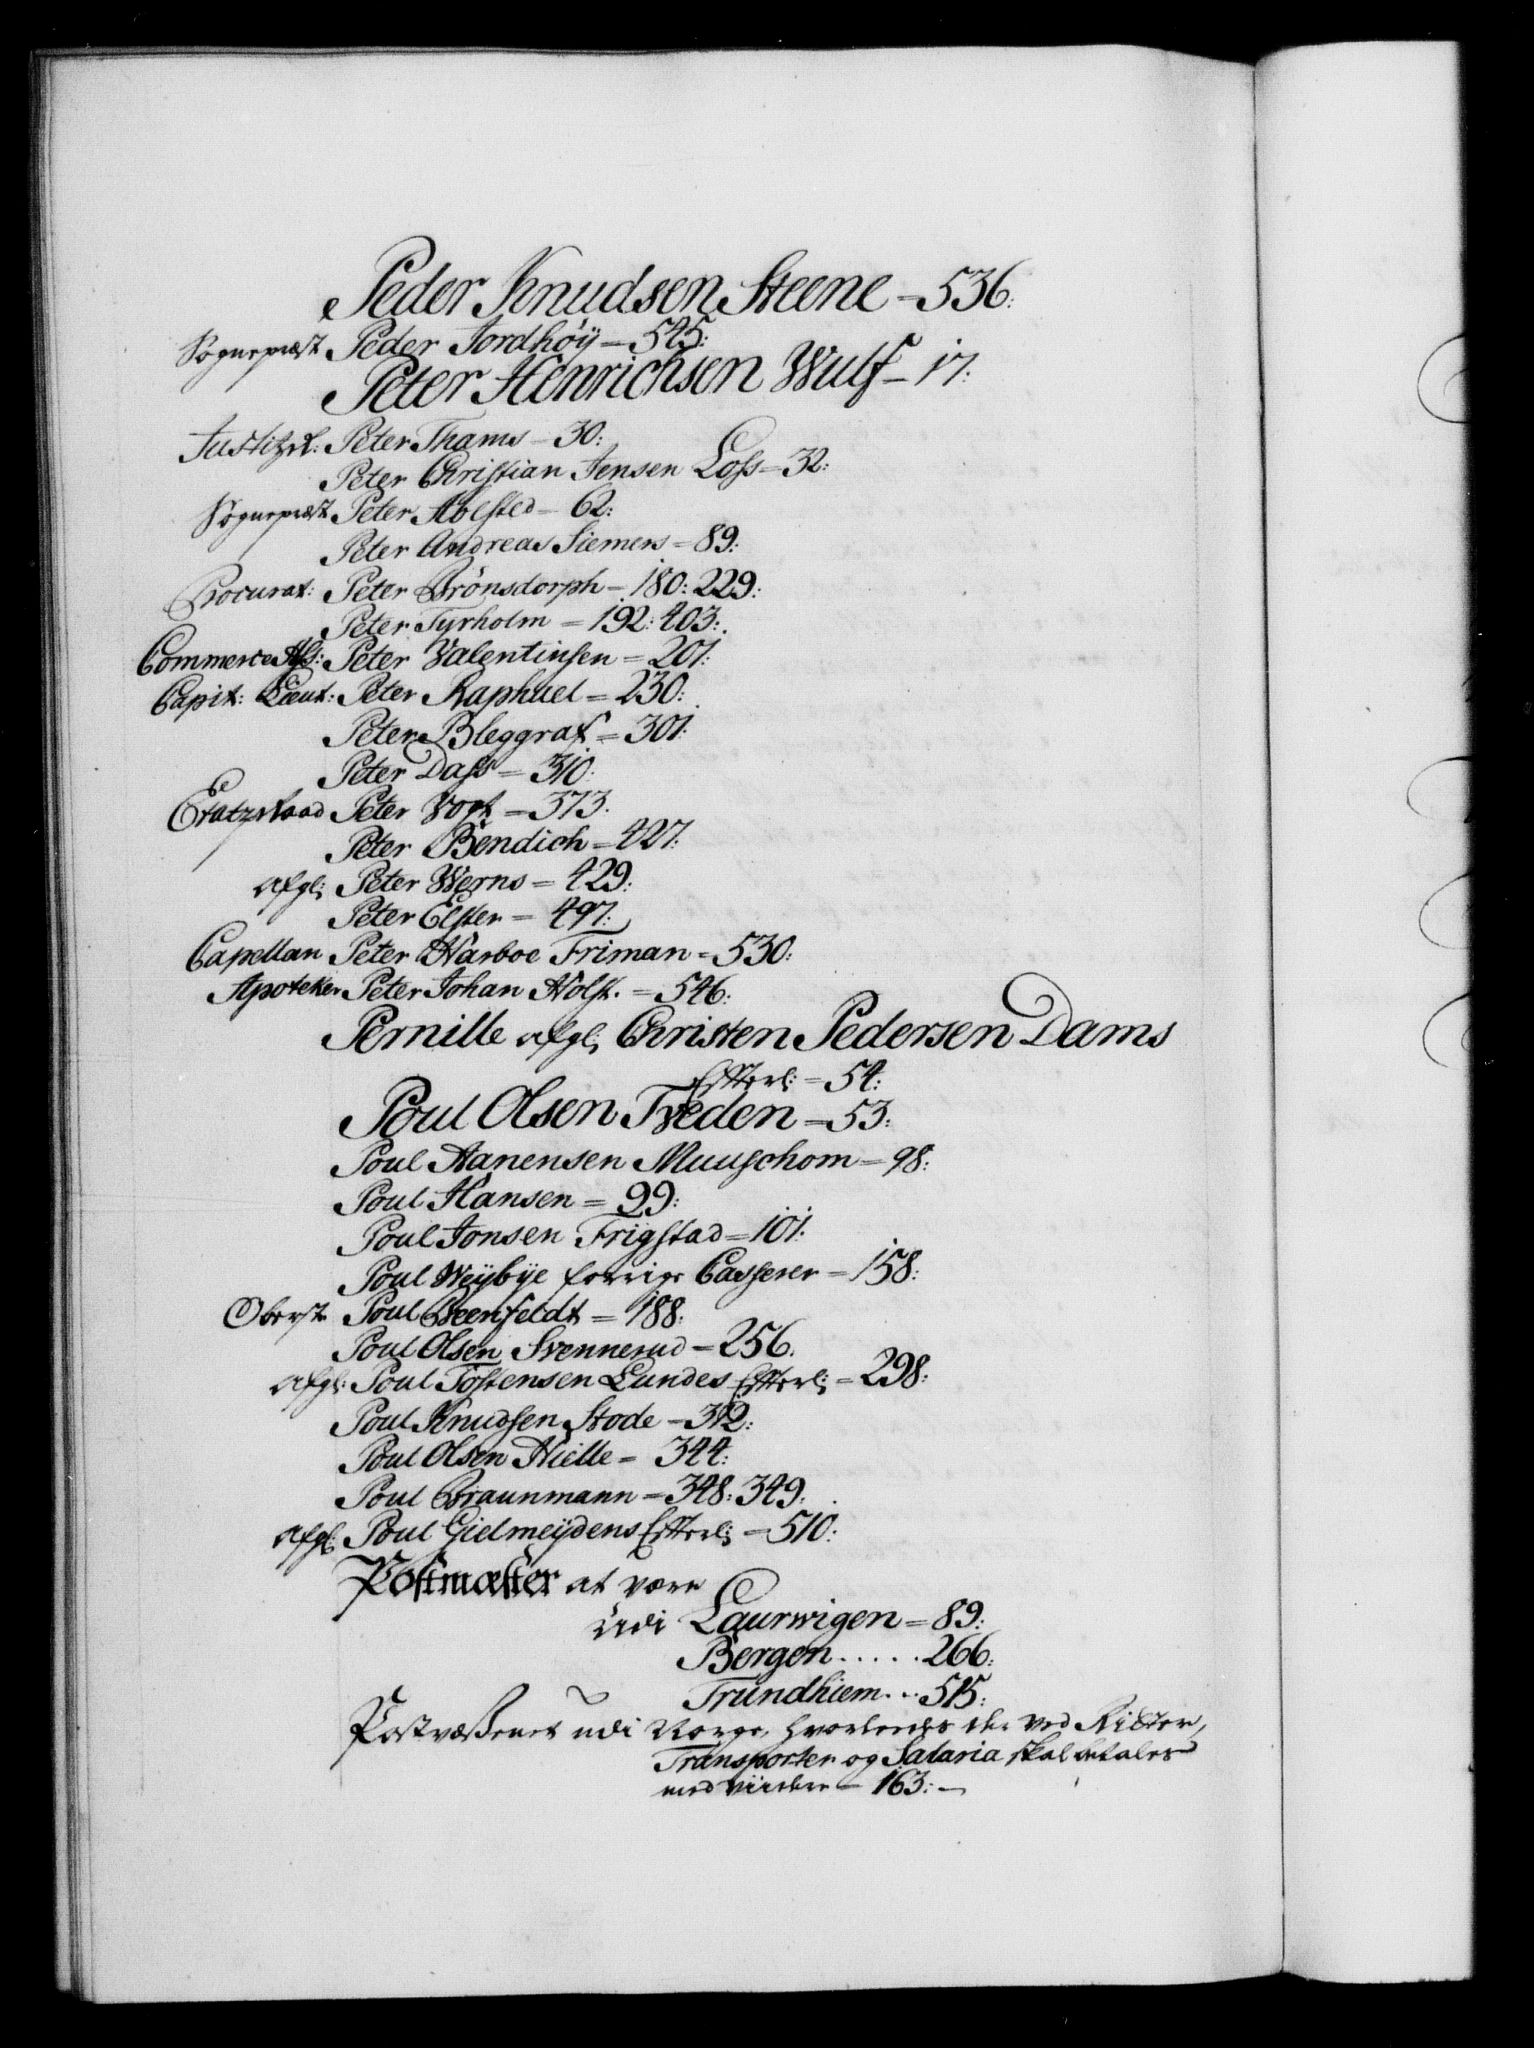 Peder Knudsen Steene – 536:
Sognepræst Peder Jordhöÿ – 545:
Peter Henrichsen Wulf – 17:
Justitzr: Peter Thams – 30:
Peter Christian Jensen Loss – 32:
Sognepræst Peter Abested – 62:
Peter Andreas Siemers – 89:
Procurat: Peter Brönsdorph – 180: 229:
Peter Tyrholm – 192: 403:
Commerce Ass: Peter Valentinsen = 201:
Capit: Lieut: Peter Raphael = 230:
Peter Bleggraf = 301:
Peter Dass = 310:
Etatzraad Peter Vogt = 373.
Peter Bendich = 427:
afgl: Peter Werns = 429:
Peter Elster = 497:
Capellan Peter Harboe Friman = 530:
Apoteker Peter Johan Holst. = 546:
Pernille afgl: Christen Pedersen Dams
Efterl: = 54:
Poul Olsen Tveden = 53:
Poul Aanensen Muuschom = 98:
Poul Hansen = 99:
Poul Jonsen Frigstad = 101:
Poul Weÿbÿe forrige Casserer = 158:
Oberst Poul Beenfeldt = 188:
Poul Olsen Svennerud = 256.
afgl: Poul Tostensen Lundes Efterl: = 298:
Poul Knudsen Stode = 312:
Poul Olsen Hielle = 344:
Poul Braunmann = 348: 349:
afgl: Poul Gielmeÿdens Efterl: = 510:
Postmæster at være
udi Laurwigen = 89:
Bergen ..... 266:
Trundhiem ... 515:
Postvæssenet udi Norge, hvorledes der ved Ridter,
Transporter og Salaria skal betales
med viidere = 163: –